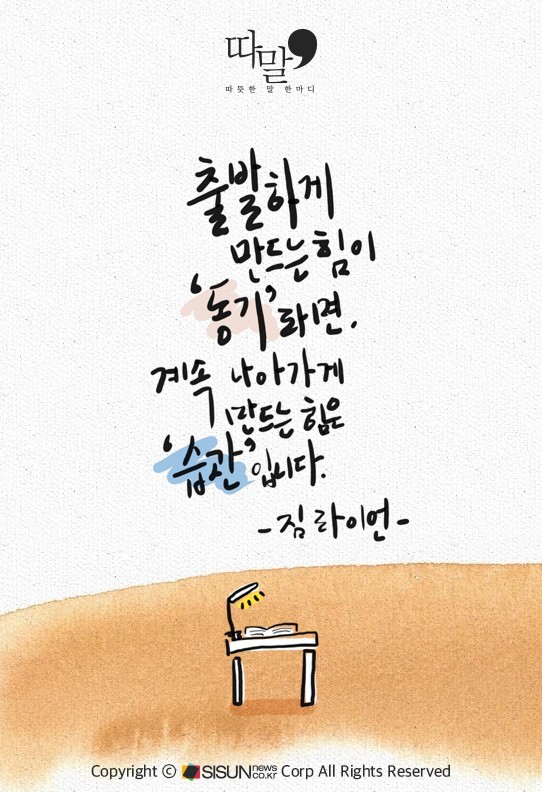 따말,
따뜻한 말 한마디
출발하게
만드는 힘이
'동기'라면,
계속 나아가게
만드는 힘은
'습관'입니다.
- 짐 라이언 -
Copyright ⓒ SISUN news co.kr Corp All Rights Reserved